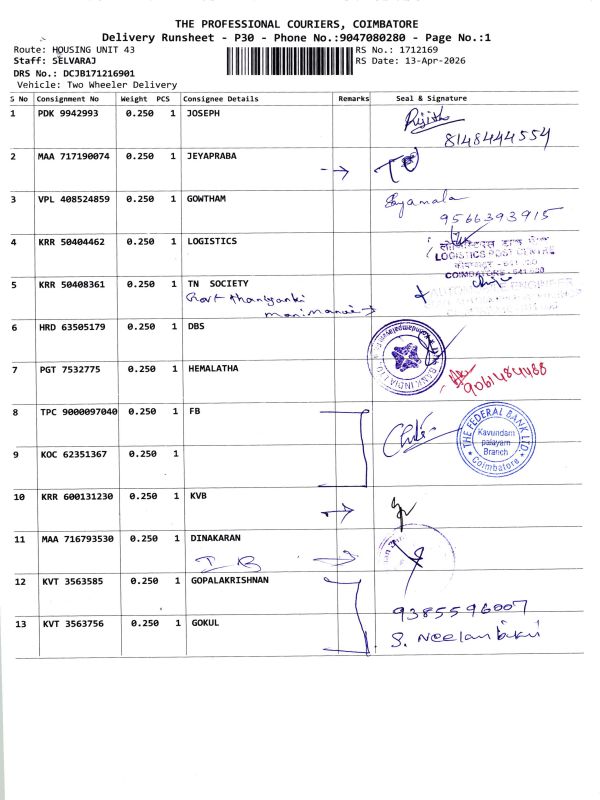 THE PROFESSIONAL COURIERS, COIMBATORE
Delivery Runsheet - P30 - Phone No.:9047080280 - Page No.:1
Route: HOUSING UNIT 43
RS No.: 1712169
Staff: SELVARAJ
RS Date: 13-Apr-2026
DRS No.: DCJB171216901
Vehicle: Two Wheeler Delivery
S No Consignment No Weight PCS Consignee Details Remarks Seal & Signature
1 PDK 9942993 0.250 1 JOSEPH
8148444554
2 MAA 717190074 0.250 1 JEYAPRABA
3 VPL 408524859 0.250 1 GOWTHAM Syamala
9566393915
4 KRR 50404462 0.250 1 LOGISTICS
LOGISTICS POST CENTRE
COIMBATORE - 641 020
5 KRR 50408361 0.250 1 TN SOCIETY
Govt
6 HRD 63505179 0.250 1 DBS
BANK INDIA LTD
7 PGT 7532775 0.250 1 HEMALATHA
9061484488
8 TPC 9000097040 0.250 1 FB
THE FEDERAL BANK LTD.
Kavundam
palayam
Branch
Coimbatore
9 KOC 62351367 0.250 1
10 KRR 600131230 0.250 1 KVB
11 MAA 716793530 0.250 1 DINAKARAN
12 KVT 3563585 0.250 1 GOPALAKRISHNAN
9385596007
13 KVT 3563756 0.250 1 GOKUL
S. Neelambikai